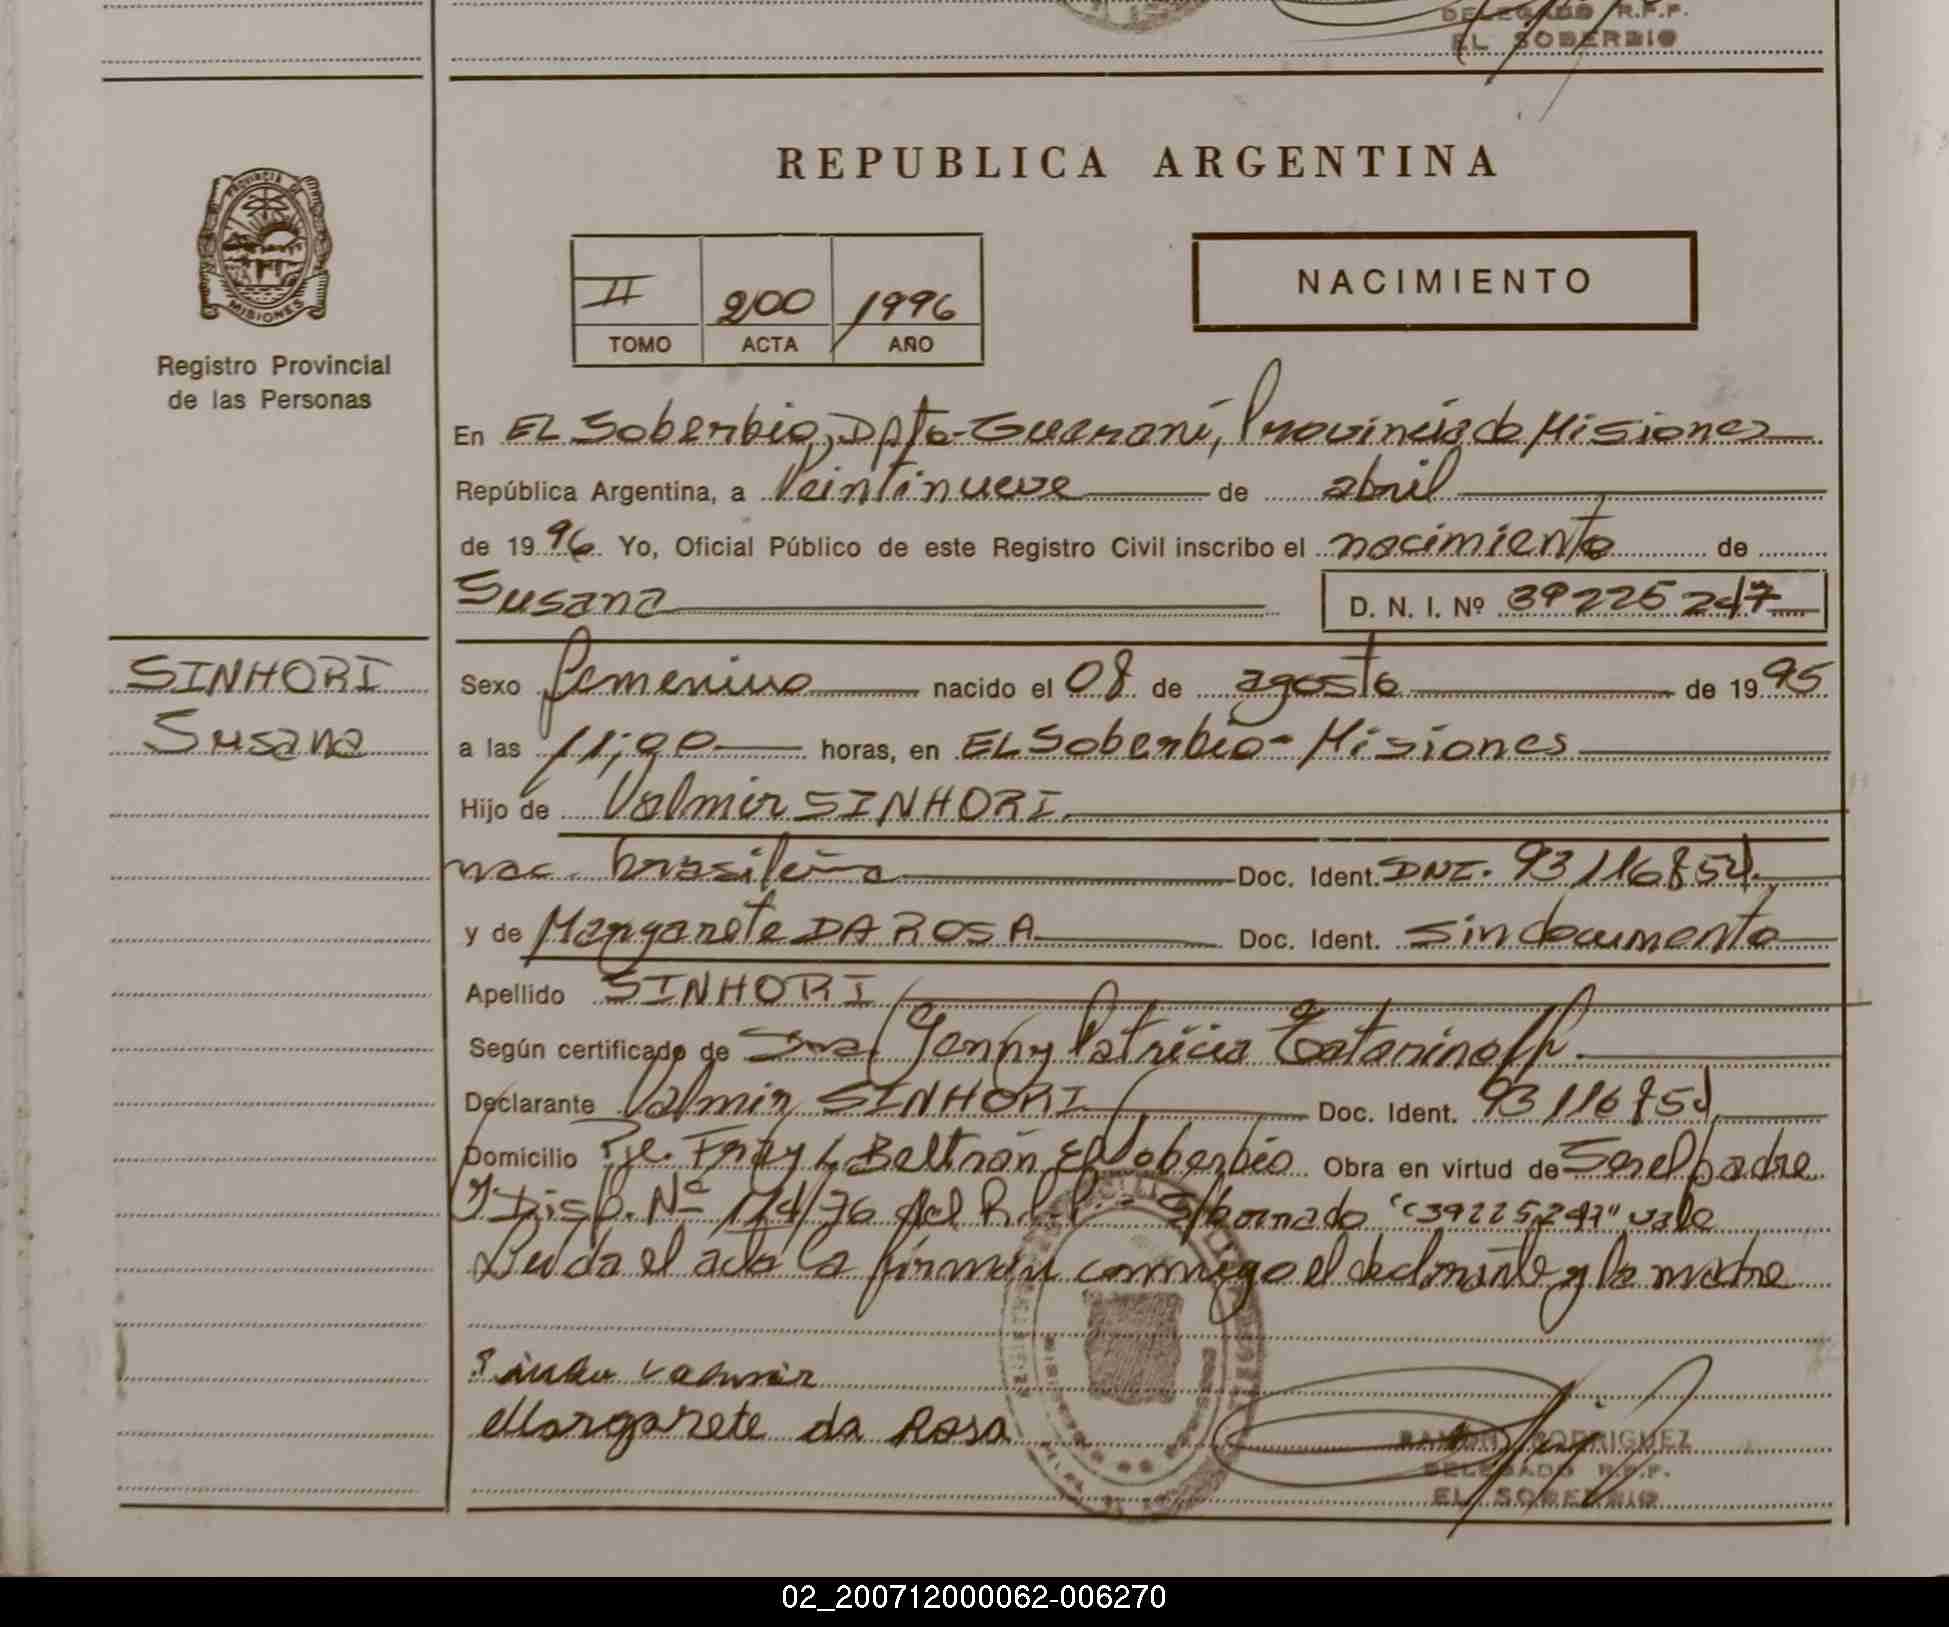 DELEGADO R.P.P.
EL SOBERBIO
REPUBLICA ARGENTINA
PROVINCIA DE
MISIONES
Registro Provincial
de las Personas
II 200 1996
TOMO ACTA AÑO
NACIMIENTO
En EL Soberbio, Dpto-Guaraní, Provincia de Misiones
República Argentina, a Veintinueve de abril
de 1996 Yo, Oficial Público de este Registro Civil inscribo el nacimiento de
Susana D. N. I. Nº 39225247
SINHORI
Susana
Sexo femenino nacido el 08 de agosto de 1995
a las 11,00 horas, en EL Soberbio - Misiones
Hijo de Valmir SINHORI
nac. brasileña Doc. Ident. DNI. 93116854
y de Margarete DA ROSA Doc. Ident. sin documento
Apellido SINHORI
Según certificado de Dra. Jenny Patricia
Declarante Valmir SINHORI Doc. Ident. 93116854
Domicilio Pje. Fray L. Beltrán El Soberbio Obra en virtud de Ser el padre
y Disp. Nº 114/76 del R.P.P. - S/borrado "39225247" vale
Leida el acta la firman conmigo el declarante y la madre
Valmir
Margarete da Rosa
RAMON RODRIGUEZ
DELEGADO R.P.P.
EL SOBERBIO
02_200712000062-006270